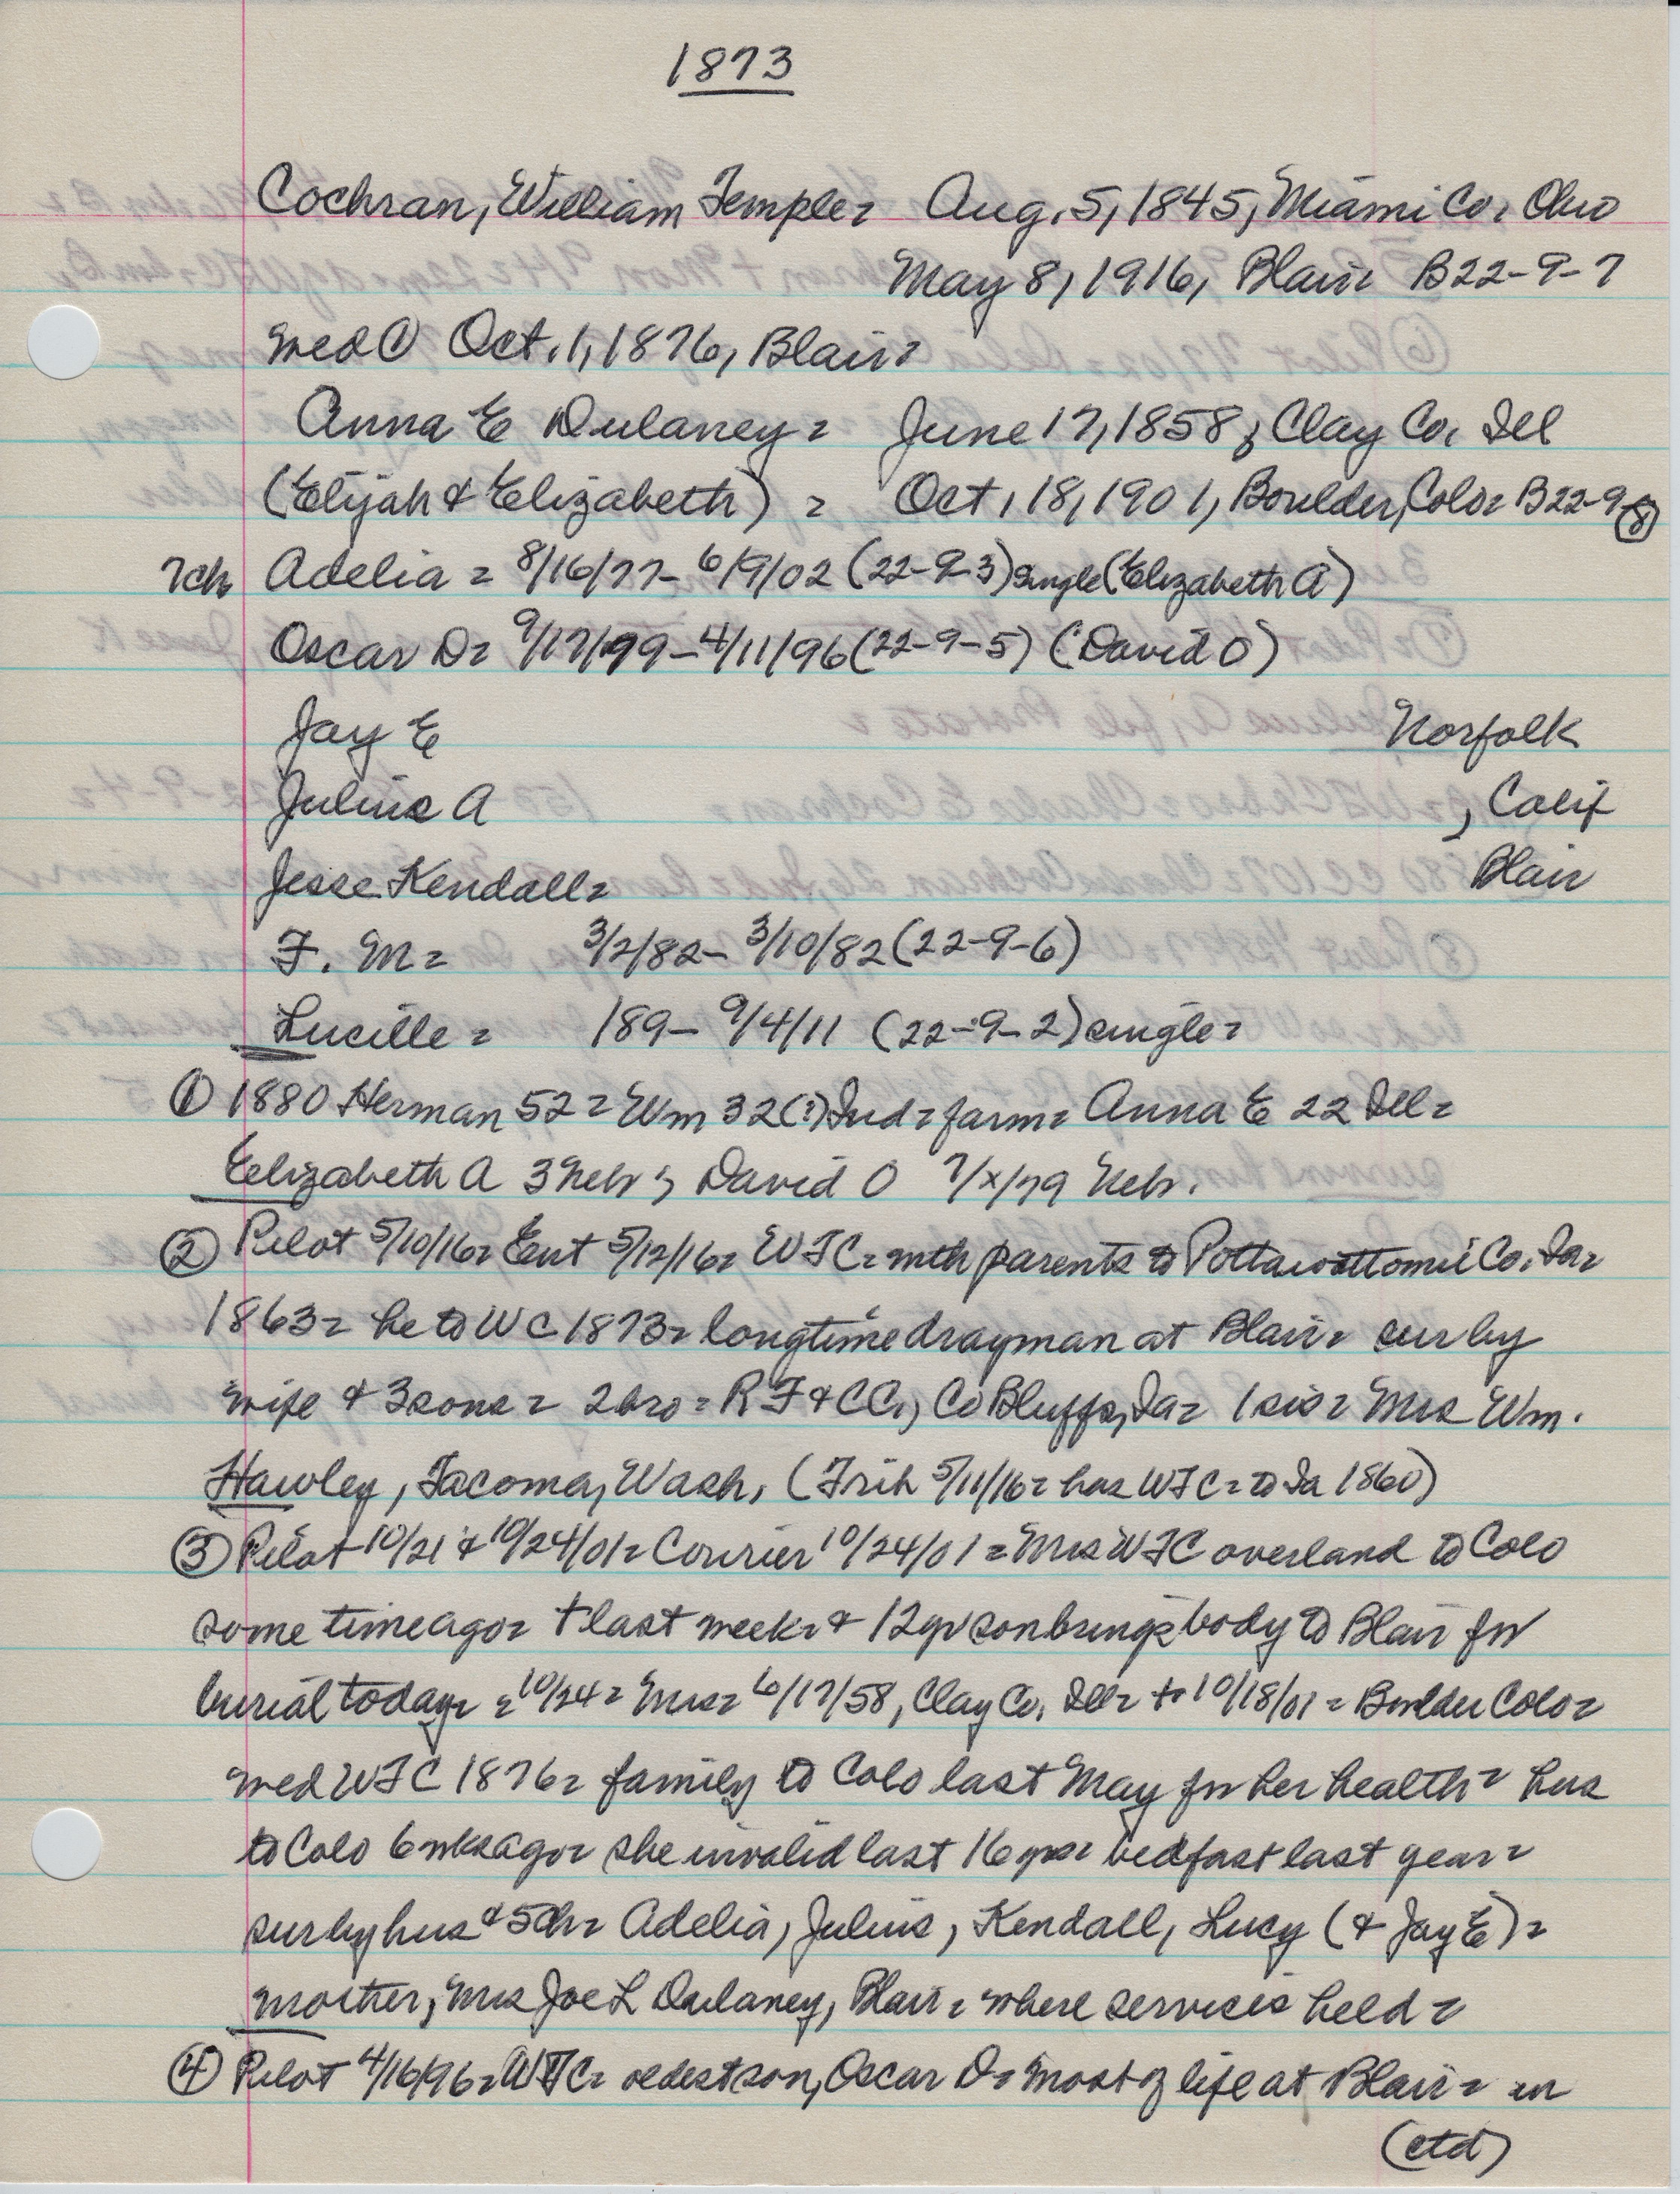 1873
Cochran, William Temple = Aug. 5, 1845, Miami Co. Ohio
May 8, 1916, Blair = B22-9-7
med ① Oct. 1, 1876, Blair =
Anna E Dulaney = June 17, 1858, Clay Co. Ill
(Elijah & Elizabeth) = Oct. 18, 1901, Boulder, Colo = B22-9-⑧
7ch Adelia = 8/16/77 - 6/9/02 (22-9-3) single (Elizabeth A)
Oscar D = 9/17/79 - 4/11/96 (22-9-5) (David O)
Jay E Norfolk
Julius A , Calif
Jesse Kendall = Blair
F. M = 3/2/82 - 3/10/82 (22-9-6)
Lucille = 189 - 9/4/11 (22-9-2) single =
① 1880 Herman 52 = Wm 32 (?) Ind = farm = Anna E 22 Ill =
Elizabeth A 3 Nebr ; David O 7/x/79 Nebr.
② Pilot 5/10/16 = Ent 5/12/16 = WTC = with parents to Pottawattomie Co. Ia =
1863 = he to WC 1873 = longtime drayman at Blair = sur by
wife & 3 sons = 2 bro = R F & CC, Co Bluffs, Ia = 1 sis = Mrs Wm.
Hawley, Tacoma, Wash. (Trib 5/11/16 = has WTC = to Ia 1860)
③ Pilot 10/21 & 10/24/01 = Courier 10/24/01 = Mrs WTC overland to Colo
some time ago = † last week = & 12 yr son brings body to Blair for
burial today = = 10/24 = Mrs = 6/17/58, Clay Co. Ill = † 10/18/01 = Boulder Colo =
med WTC 1876 = family to Colo last May for her health = hus
to Colo 6 wks ago = she invalid last 16 yrs = bedfast last year =
sur by hus & 5 ch = Adelia, Julius, Kendall, Lucy (& Jay E) =
mother, Mrs Joe L Dulaney, Blair = where services held =
④ Pilot 4/16/96 = WTC = oldest son, Oscar D = most of life at Blair = in
(ctd)